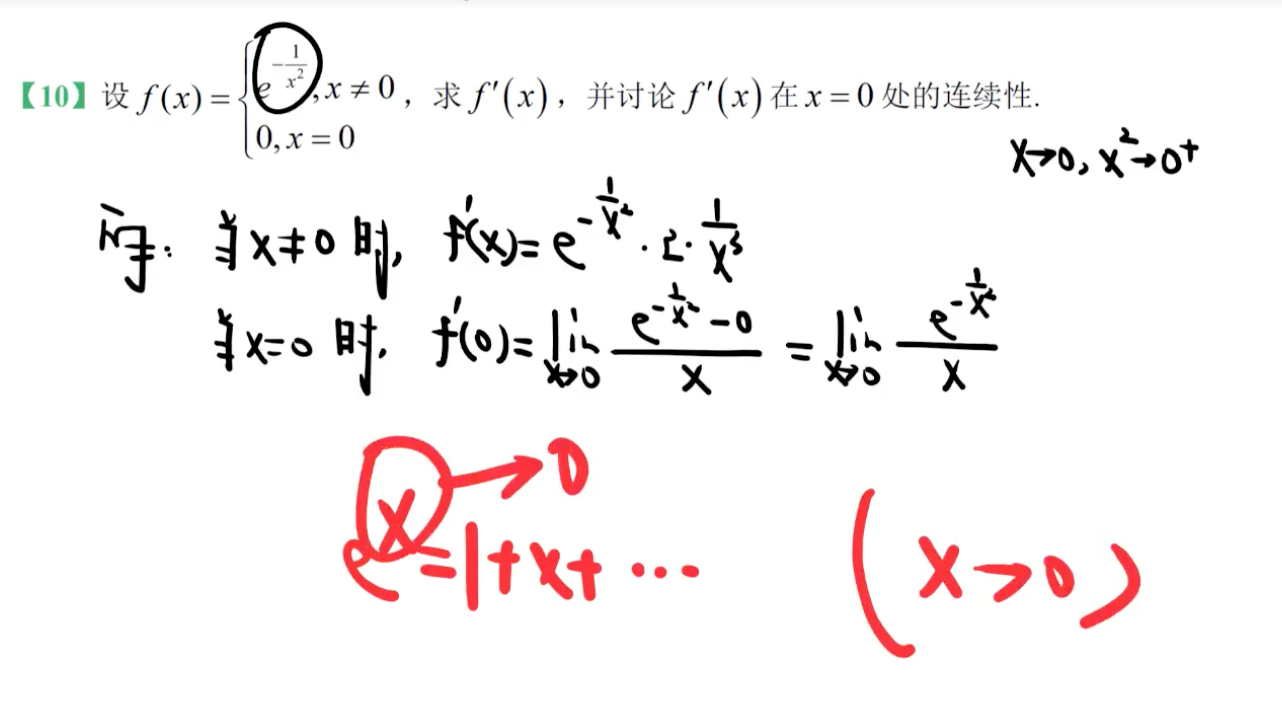 【10】设 f(x) = { e^{-\frac{1}{x^2}}, x ≠ 0, 求 f′(x), 并讨论 f′(x) 在 x = 0 处的连续性.
0, x = 0
x→0, x²→0⁺
解: 当 x≠0 时, f′(x)= e^{-\frac{1}{x^2}} · 2 · \frac{1}{x^3}
当 x=0 时, f′(0)= \lim_{x→0} \frac{e^{-\frac{1}{x^2}} - 0}{x} = \lim_{x→0} \frac{e^{-\frac{1}{x^2}}}{x}
→ 0
e^x = 1 + x + ··· (x→0)